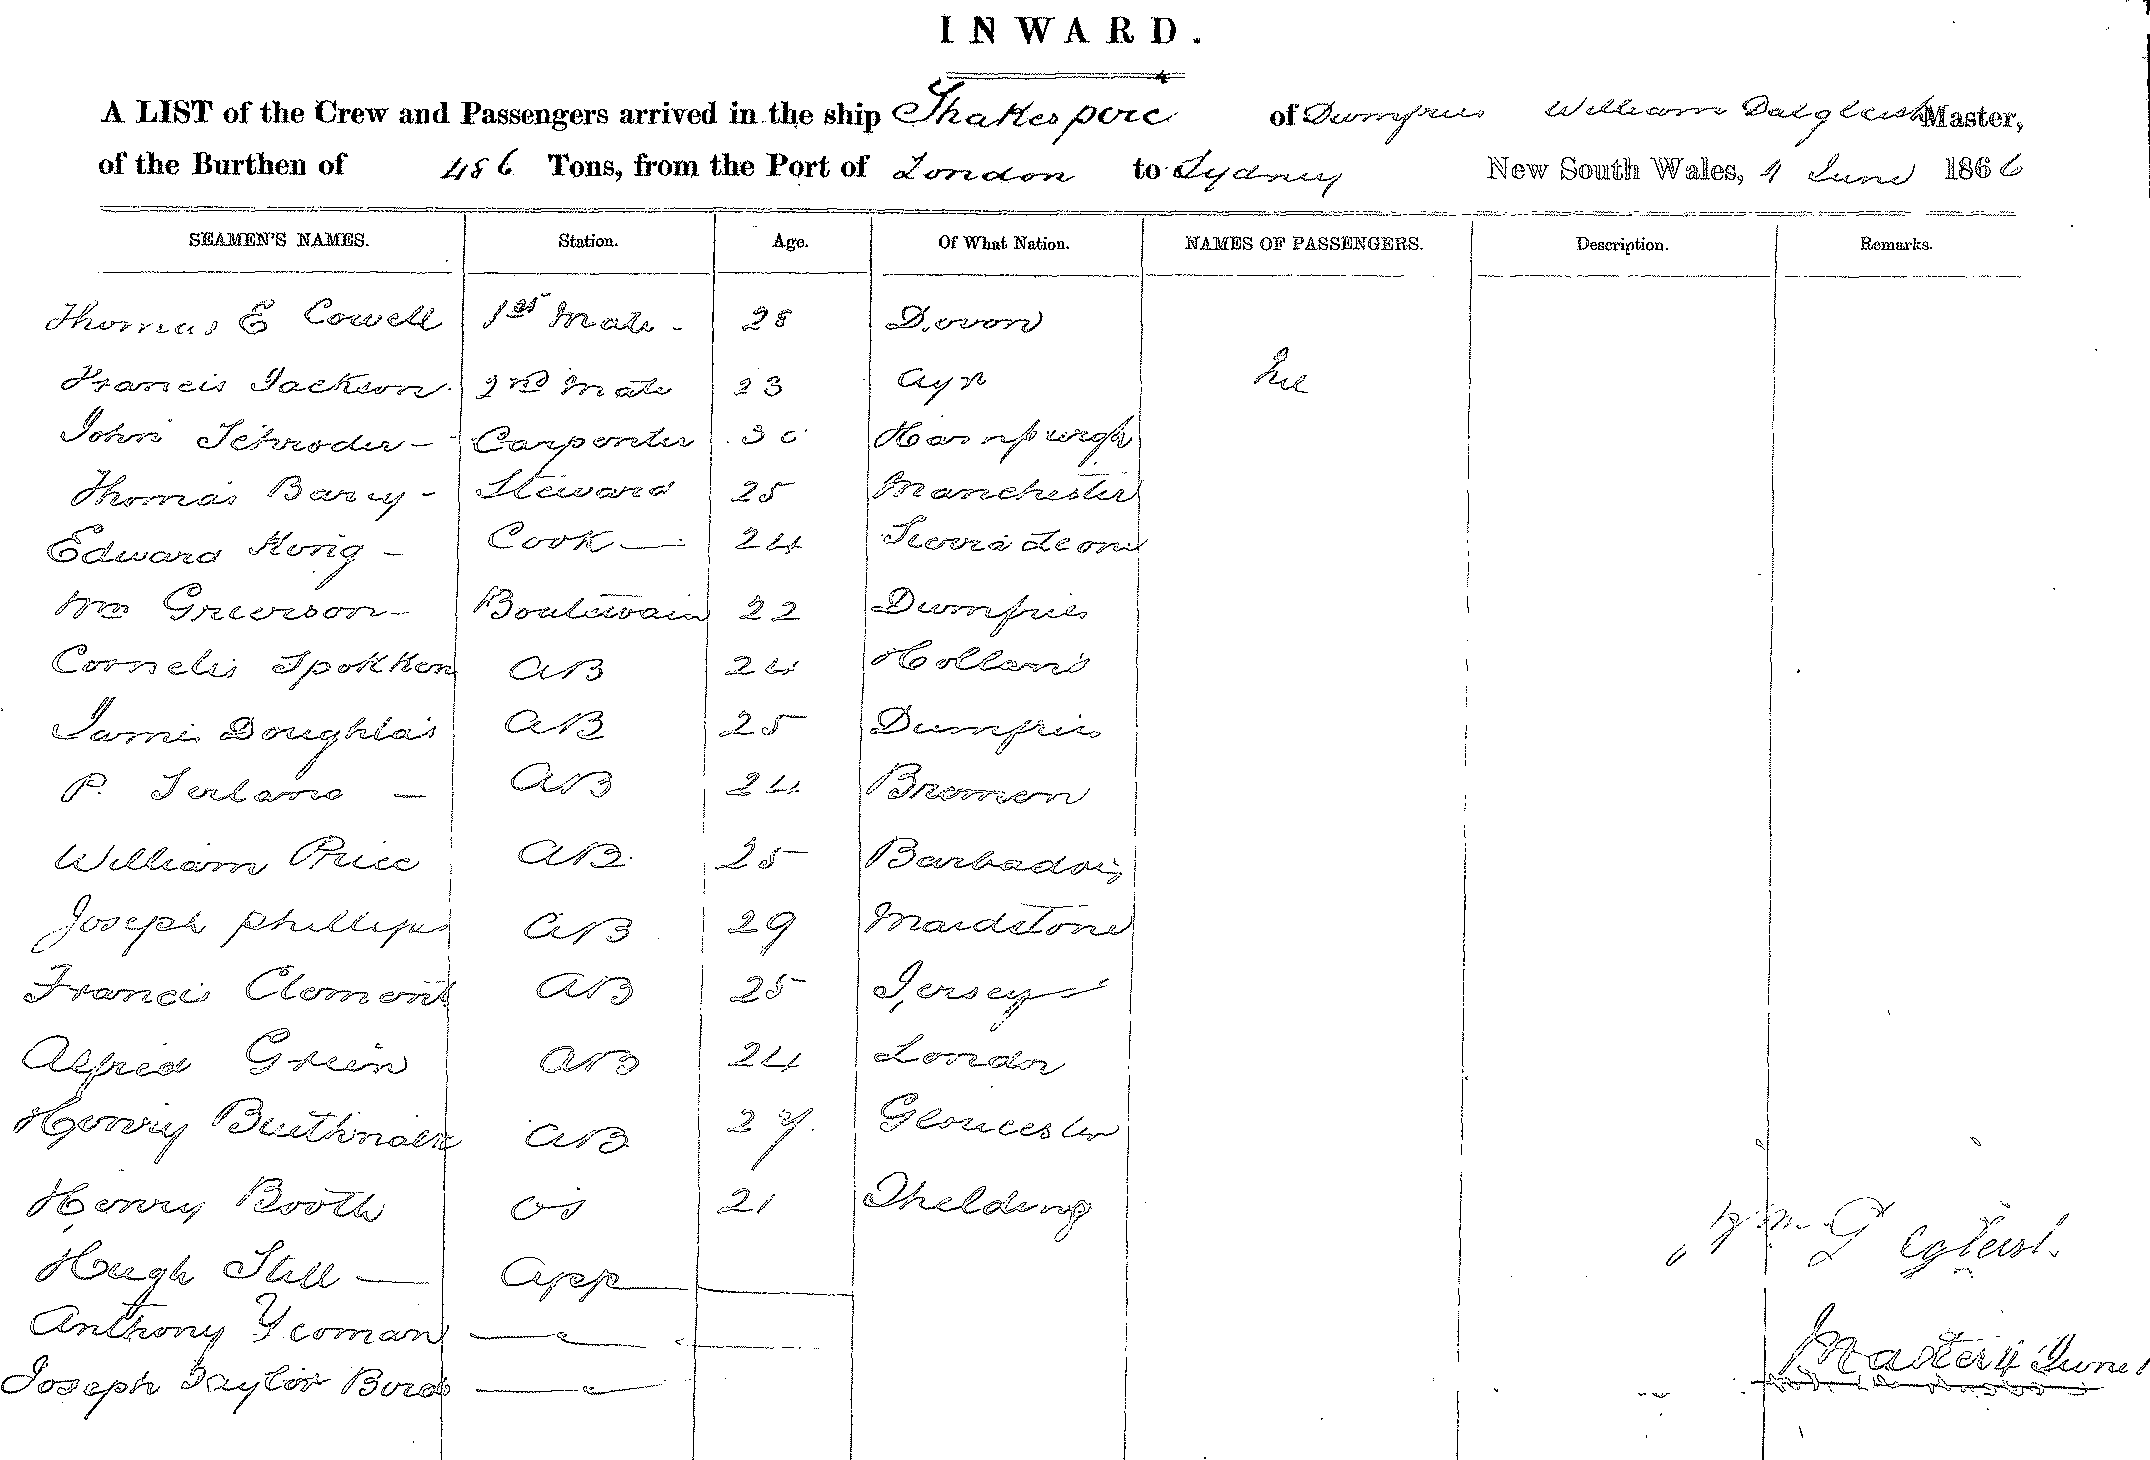 INWARD.
A LIST of the Crew and Passengers arrived in the ship Shakespere of Dumfries William Dalgleish Master,
of the Burthen of 486 Tons, from the Port of London to Sydney New South Wales, 4 June 1866
SEAMEN'S NAMES. Station. Age. Of What Nation. NAMES OF PASSENGERS. Description. Remarks.
Thomas E Cowell 1st Mate - 28 Devon
Francis Jackson 2nd Mate 23 Ayr Nil
John Schroder - Carpenter 30 Hamburgh
Thomas Barry - Steward 25 Manchester
Edward King - Cook — 24 Sierra Leone
Wm Grierson - Boatswain 22 Dumfries
Cornelis Spokken AB 24 Holland
James Doughlas AB 25 Dumfries
P. AB 24 Bremen
William Price AB 25 Barbados
Joseph Phillips AB 29 Maidstone
Francis Clement AB 25 Jersey
Alfred Green AB 24 London
Henry AB 27 Gloucester
Henry Booth OS 21
Hugh Still — App
Wm
Anthony Yeoman
Master 4 June
Joseph Taylor